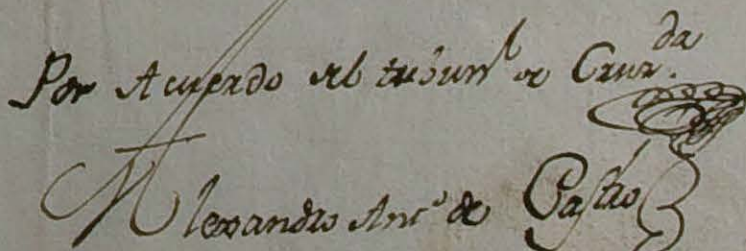 Por Acuerdo del tribunl de Cruzda
Alexandro Antº de Castro